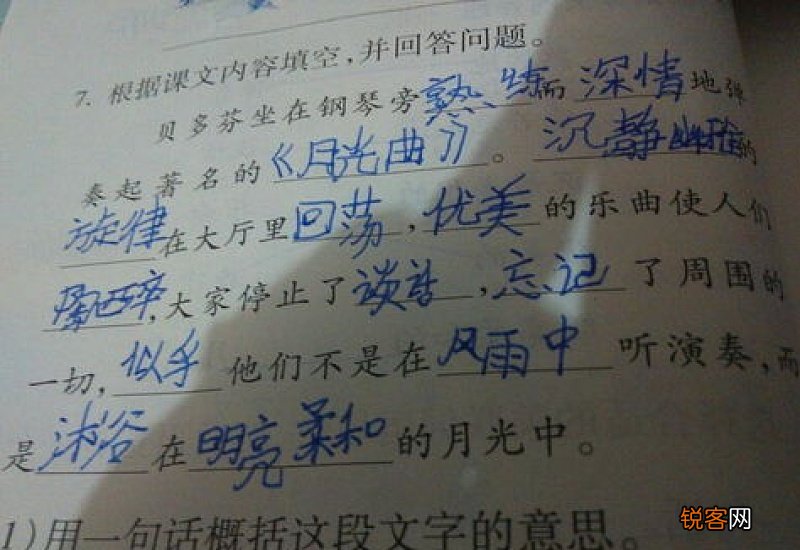 7. 根据课文内容填空,并回答问题。
贝多芬坐在钢琴旁熟练而深情地弹
奏起著名的《月光曲》。沉静幽雅的
旋律在大厅里回荡,优美的乐曲使人们
陶醉,大家停止了谈话,忘记了周围的
一切,似乎他们不是在风雨中听演奏,而
是沐浴在明亮柔和的月光中。
1)用一句话概括这段文字的意思。
锐客网